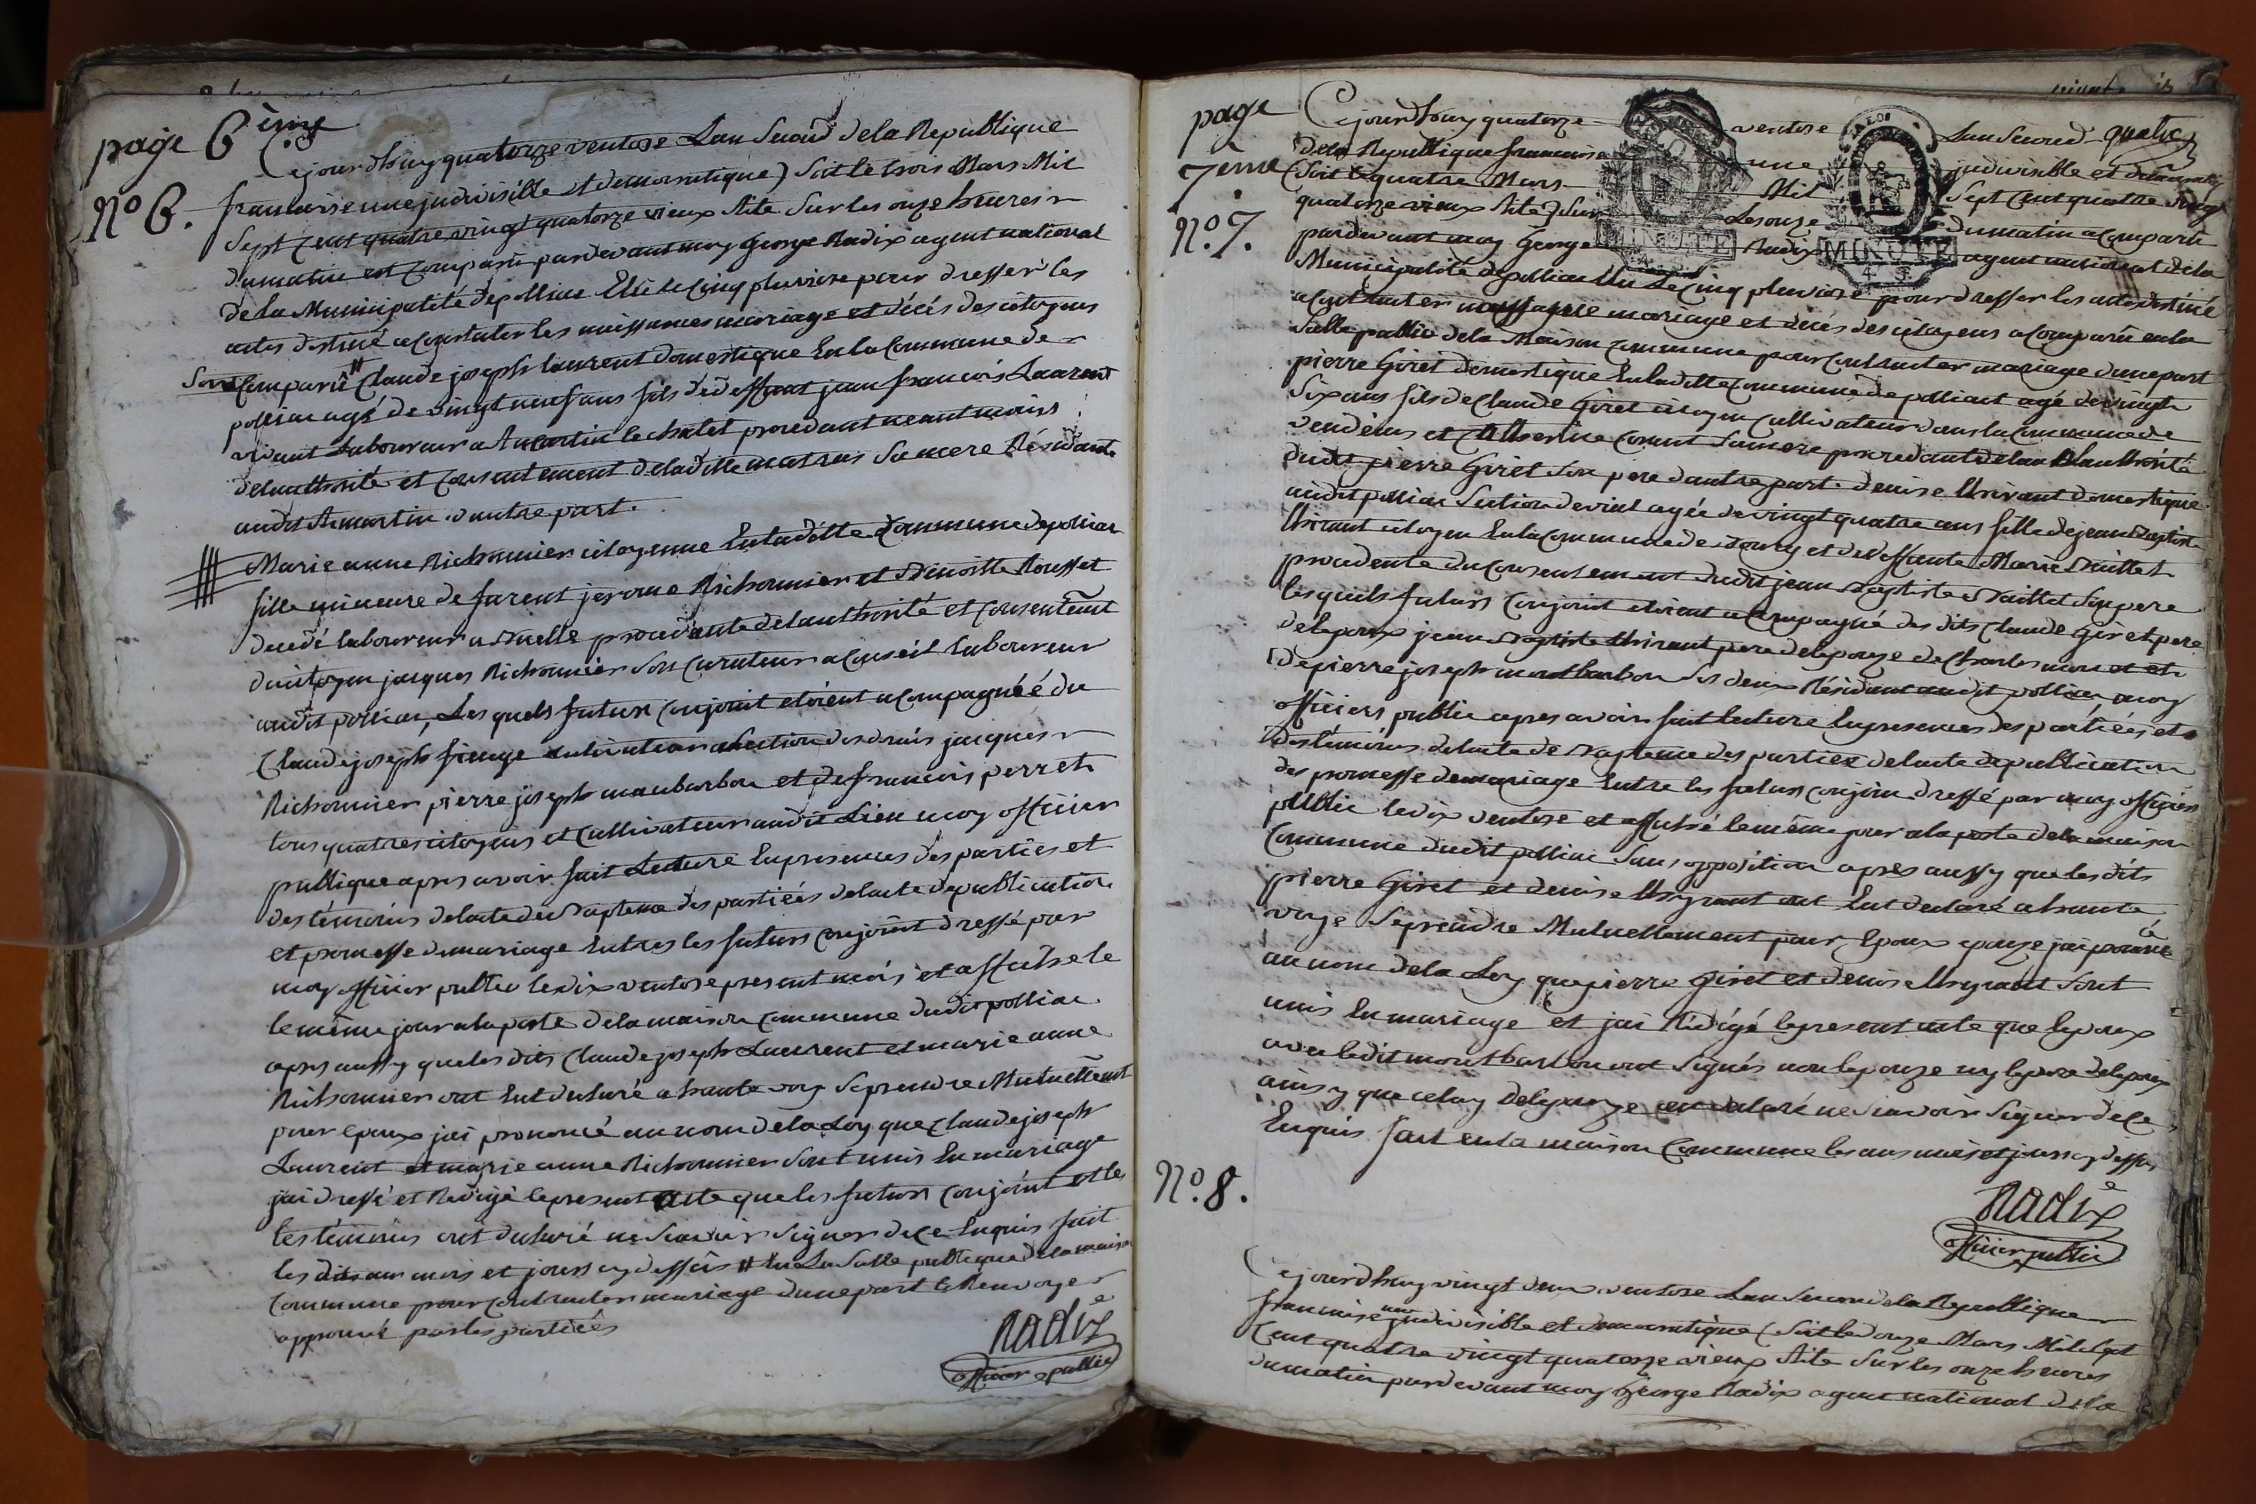 page 6ème
Cejourdhuy quatorze ventose Lan Second dela Republique
No 6. francaise une judivisible et democratique) Soit le trois Mars Mil
Sept Cent quatre vingt quatorze vieux stile Sur les onze heures
dumatin est comparu pardevant moy George Nadix agent national
de la Municipalité de polliac Elu le Cinq pluviose pour dresser les
actes destiné a Constater les naissances mariage et décés des citoyens
Sont Comparu # Claude joseph laurent domestique En la Commune de
polliac agé de vingt neuf ans fils de deffunt jean francois Laurent
vivant Laboureur a St martin le chatel procedant neantmoins
delauthorité et Consentement deladitte Sa mere Résidante
audit St martin d'autre part.
Marie anne Richonnier citoyenne En laditte Commune de polliac
fille mineure de furent jerome Richonnier et Benoitte Rousset
decedé laboureur a procedante delauthorité et consentemt
du citoyen jacques Richonnier Son Curateur a Conseil laboureur
audit polliac, Lesquels futurs Conjoint etoient accompagnéé du
Claude joseph cultivateur a jacques
Richonnier pierre joseph monbarbon et de francois perret
tous quatres citoyens et Cultivateur audit Lieu moy officier
publique apres avoir fait Lecture En presences des parties et
des témoins delacte deu Baptème des partiées delacte depublication
et promesse de mariage Entres les futurs Conjoint dressé par
moy officier public le dix ventose present mois et affiché le
le même jour a la porte de la maison commune dudit polliac
apres aussy que les dits Claude joseph Laurent et marie anne
Richonnier ont Eut declaré a haute voix Se prendre Mutuellement
pour epoux jai prononcé au nom de la Loy que Claude joseph
Laurent et marie anne Richonnier Sont unis En mariage
jai dressé et Redigé le present acte que les futurs Conjoint et les
les témoins ont declaré ne Scavoir Signer de ce Enquis fait
les dits an mois et jours cy dessus # En La Salle publique de la maison
Commune pour Contracter mariage dune part le Renvoye
approuvé par les partiées
Nadix
officier public
page 7ème
No. 7.
Cejourdhuy quatorze ventose Lan Second quatre
dela Republique francaise une judivisible et democratiq
(Soit le quatre Mars Mil Sept Cent quatre vingt
quatorze vieux stile) Sur Les onze dumatin a Comparu
pardevant moy George Nadix agent national dela
MINUTE
MINUTE
Municipalité de polliac Elu Le Cinq pluviose pour dresser les actes destiné
a Constater naissance mariage et décés des citoyens a Comparu en la
Salle public de la Maison Commune pour Contracter mariage dune part
pierre Giret domestique En laditte Commune de polliat agé de vingt
Six ans fils de Claude Giret citoyen Cultivateur dans la Commune de
vendeins et Catherine Sa mere procedant delauthorité
dudit pierre Giret Son pere dautre part. denise domestique
audit polliac agée de vingt quatre ans fille de jean Baptiste
citoyen En la Commune de et de deffunte Marie
procedente du Consentement dudit jean Baptiste Son pere
lesquels futurs Conjoint etoient accompagné des dits Claude Giret pere
delepoux jean Baptiste pere delepouze de Charles et de
de pierre joseph montbarbon Les deux Résidant audit polliac moy
officiers public apres avoir fait lecture En presences des partiées et
des témoins delacte de Bapteme des parties delacte depublication
des promesse demariage Entre les futurs conjoint dressé par moy officier
public le dix ventose et affiché le même jour a la porte de la maison
Commune dudit polliac Sans opposition apres aussy que les dits
pierre Giret et denise ont Eut declaré a haute
voye Seprendre Mutuellement pour Epoux epouze jai prononcé
au nom de la Loy que pierre Giret et denise Sont
unis En mariage et jai Rédigé le present acte que Epoux
avec ledit montbarbon ont Signés non lepouze ny le pere delepoux
ainsy que celuy delepouze declaré ne Scavoir Signer de ce
Enquis fait en la maison Commune les ans mois et jours cy dessus
Nadix
officier public
No. 8.
Cejourdhuy vingt deux ventose Lan Second dela Republique
francaise une judivisible et democratique (Soit le douze Mars Mil Sept
Cent quatre vingt quatorze vieux stile Sur les onze heures
dumatin pardevant moy George Nadix agent national dela